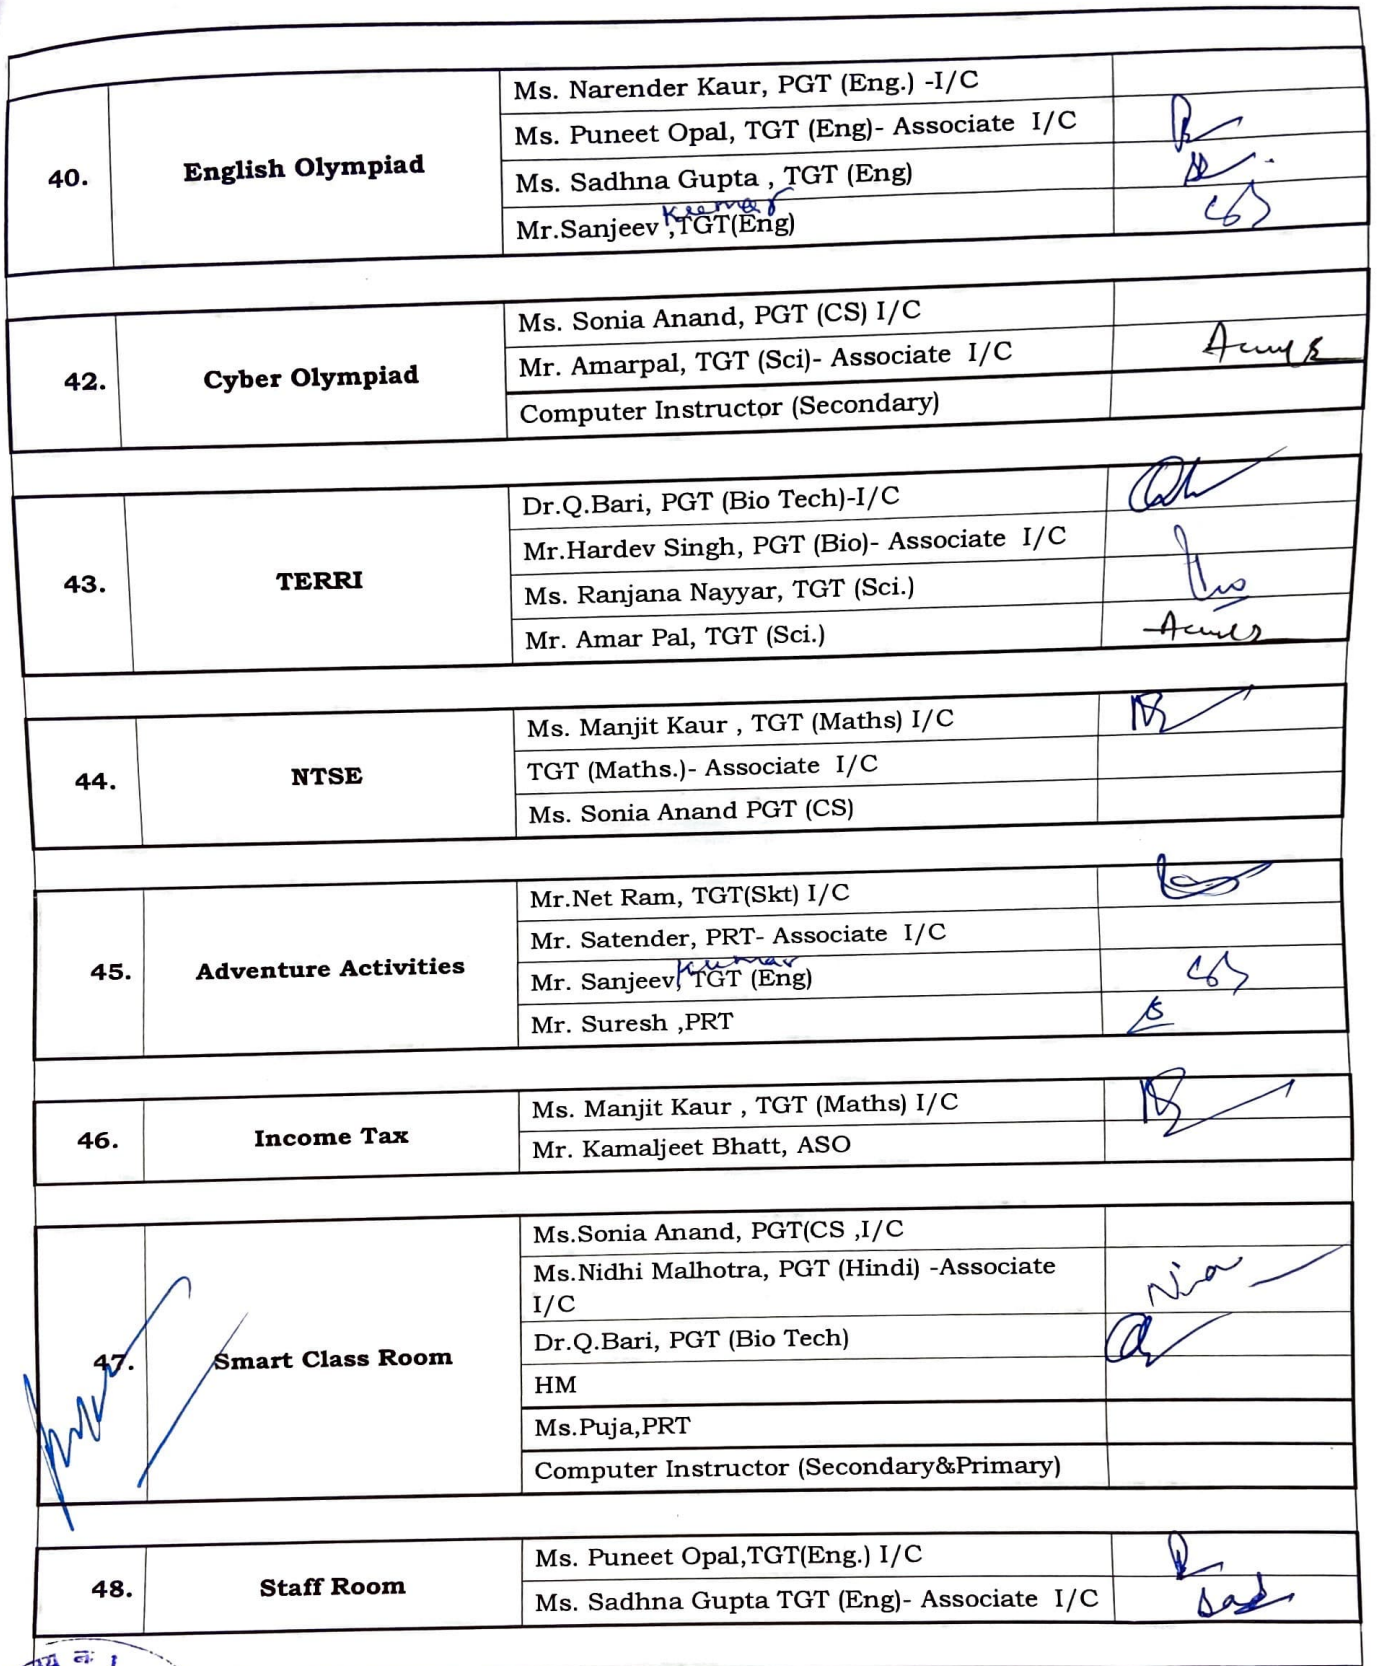 40.
English Olympiad
Ms. Narender Kaur, PGT (Eng.) -I/C
Ms. Puneet Opal, TGT (Eng)- Associate I/C
Ms. Sadhna Gupta , TGT (Eng)
Kumar
Mr.Sanjeev ,TGT(Eng)
42.
Cyber Olympiad
Ms. Sonia Anand, PGT (CS) I/C
Mr. Amarpal, TGT (Sci)- Associate I/C
Computer Instructor (Secondary)
43.
TERRI
Dr.Q.Bari, PGT (Bio Tech)-I/C
Mr.Hardev Singh, PGT (Bio)- Associate I/C
Ms. Ranjana Nayyar, TGT (Sci.)
Mr. Amar Pal, TGT (Sci.)
44.
NTSE
Ms. Manjit Kaur , TGT (Maths) I/C
TGT (Maths.)- Associate I/C
Ms. Sonia Anand PGT (CS)
45.
Adventure Activities
Mr.Net Ram, TGT(Skt) I/C
Mr. Satender, PRT- Associate I/C
Kumar
Mr. Sanjeev, TGT (Eng)
Mr. Suresh ,PRT
46.
Income Tax
Ms. Manjit Kaur , TGT (Maths) I/C
Mr. Kamaljeet Bhatt, ASO
47.
Smart Class Room
Ms.Sonia Anand, PGT(CS ,I/C
Ms.Nidhi Malhotra, PGT (Hindi) -Associate
I/C
Dr.Q.Bari, PGT (Bio Tech)
HM
Ms.Puja,PRT
Computer Instructor (Secondary&Primary)
48.
Staff Room
Ms. Puneet Opal,TGT(Eng.) I/C
Ms. Sadhna Gupta TGT (Eng)- Associate I/C